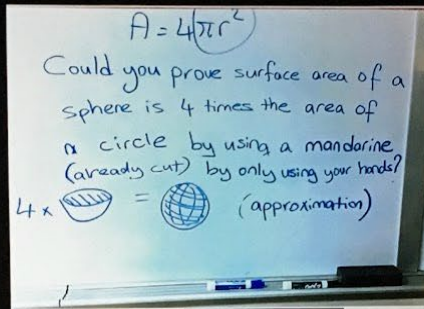 A = 4πr²
Could you prove surface area of a
sphere is 4 times the area of
a circle by using a mandarine
(already cut) by only using your hands?
4 x = (approximation)